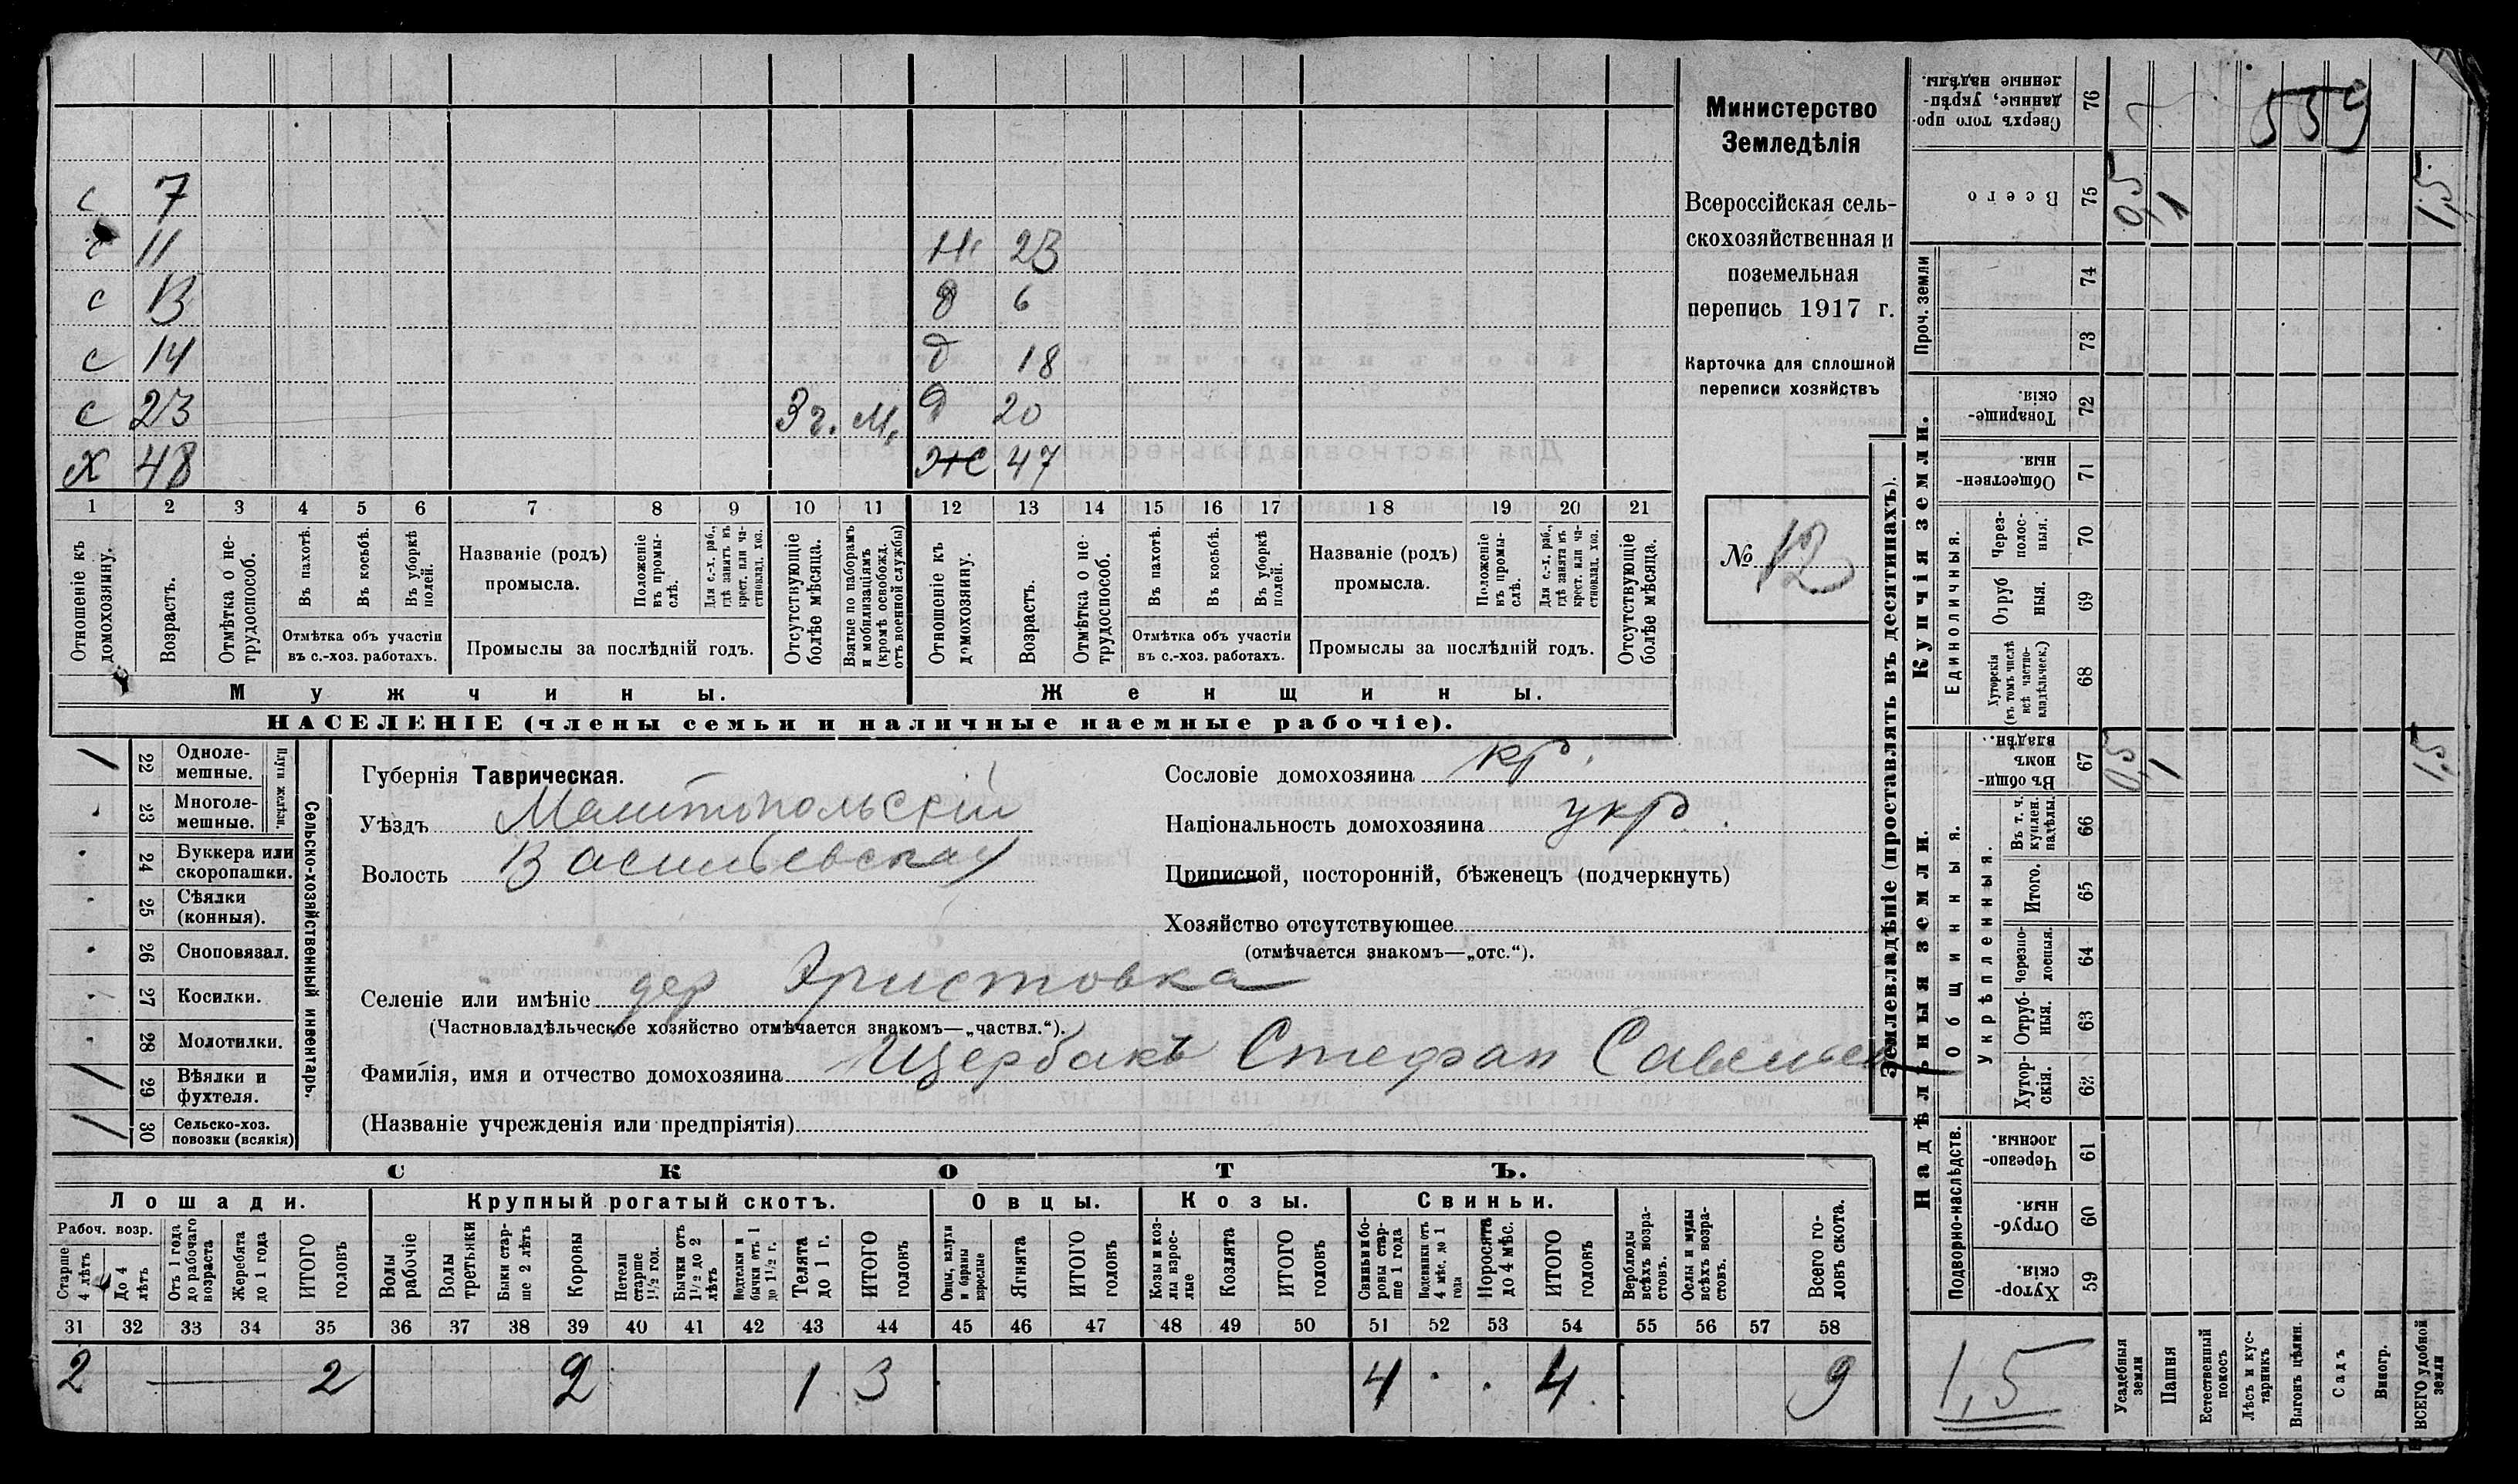 с 7
с 11
с 13
с 14
с 23 3 г. М.
Х 48
Н 23
д 6
д 18
д 20
Ж 47
1 2 3 4 5 6 7 8 9 10 11 12 13 14 15 16 17 18 19 20 21
Отношеніе къ домохозяину.
Возрастъ.
Отмѣтка о нетрудоспособ.
Въ пахотѣ.
Въ косьбѣ.
Въ уборкѣ полей.
Отмѣтка объ участіи въ с.-хоз. работахъ.
Названіе (родъ) промысла.
Положеніе въ промыслѣ.
Для с.-х. раб., гдѣ занятъ въ крест. или частновлад. хоз.
Промыслы за послѣдній годъ.
Отсутствующіе болѣе мѣсяца.
Взятые по наборамъ и мобилизаціямъ (кромѣ освобожд. отъ военной службы)
Отношеніе къ домохозяину.
Возрастъ.
Отмѣтка о нетрудоспособ.
Въ пахотѣ.
Въ косьбѣ.
Въ уборкѣ полей.
Отмѣтка объ участіи въ с.-хоз. работахъ.
Названіе (родъ) промысла.
Положеніе въ промыслѣ.
Для с.-х. раб., гдѣ занятъ въ крест. или частновлад. хоз.
Промыслы за послѣдній годъ.
Отсутствующіе болѣе мѣсяца.
Мужчины. Женщины.
НАСЕЛЕНІЕ (члены семьи и наличные наемные рабочіе).
Министерство
Земледѣлія
Всероссійская сель-
скохозяйственная и
поземельная
перепись 1917 г.
Карточка для сплошной
переписи хозяйствъ
№ 12
22 Однолемешные.
23 Многолемешные.
Плуги желѣзн.
24 Буккера или скоропашки.
25 Сѣялки (конныя).
26 Сноповязал.
27 Косилки.
28 Молотилки.
29 Вѣялки и фухтеля.
30 Сельско-хоз. повозки (всякія)
Сельско-хозяйственный инвентарь.
Губернія Таврическая.
Уѣздъ Мелитопольскій
Волость Васильевская
Сословіе домохозяина кр.
Національность домохозяина укр.
Приписной, посторонній, бѣженецъ (подчеркнуть)
Хозяйство отсутствующее
(отмѣчается знакомъ—„отс.“).
Селеніе или имѣніе дер Христовка
(Частновладѣльческое хозяйство отмѣчается знакомъ—„частвл.“).
Фамилія, имя и отчество домохозяина Щербакъ Стефан
(Названіе учрежденія или предпріятія)
СКОТЪ.
Лошади. Крупный рогатый скотъ. Овцы. Козы. Свиньи.
Рабоч. возр.
Старше 4 лѣтъ
До 4 лѣтъ
Отъ 1 года до рабочаго возраста
Жеребята до 1 года
ИТОГО головъ
Волы рабочіе
Волы третьяки
Быки старше 2 лѣтъ
Коровы
Нетели старше 1½ гол.
Бычки отъ 1½ до 2 лѣтъ
Подтелки и бычки отъ 1 до 1½ г.
Телята до 1 г.
ИТОГО головъ
Овцы, валухи и бараны взрослые
Ягнята
ИТОГО головъ
Козы и козлы взрослые
Козлята
ИТОГО головъ
Свиньи и боровы старше 1 года
Подсвинки отъ 4 мѣс. до 1 года
Поросята до 4 мѣс.
ИТОГО головъ
Верблюды всѣхъ возрастовъ.
Ослы и мулы всѣхъ возрастовъ.
Всего головъ скота.
31 32 33 34 35 36 37 38 39 40 41 42 43 44 45 46 47 48 49 50 51 52 53 54 55 56 57 58
2 — 2 2 1 3 4 4 9
559
Землевладѣніе (проставлять въ десятинахъ).
Сверхъ того проданные, укрѣпленные надѣлы. 76
Всего 75 0,5 1 1,5
Проч. земли
74
73
Купчія земли.
Товарищескія. 72
Общественныя. 71
Единоличныя.
Черезполосныя. 70
Отрубныя. 69
Хуторскія (въ томъ числѣ всѣ частновладѣльческ.) 68
Надѣльныя земли.
Общинныя.
Въ общинномъ владѣн. 67 0,5 1 1,5
Укрѣпленныя.
Въ т. ч. куплен. надѣлы. 66
Итого. 65
Черезполосныя. 64
Отрубныя. 63
Хуторскія. 62
Подворно-наслѣдств.
Черезполосныя. 61
Отрубныя. 60
Хуторскія. 59
1,5
Усадебныя земли
Пашня
Естественный покосъ
Лѣсъ и кустарникъ
Выгонъ цѣлин.
Садъ
Виногр.
ВСЕГО удобной земли